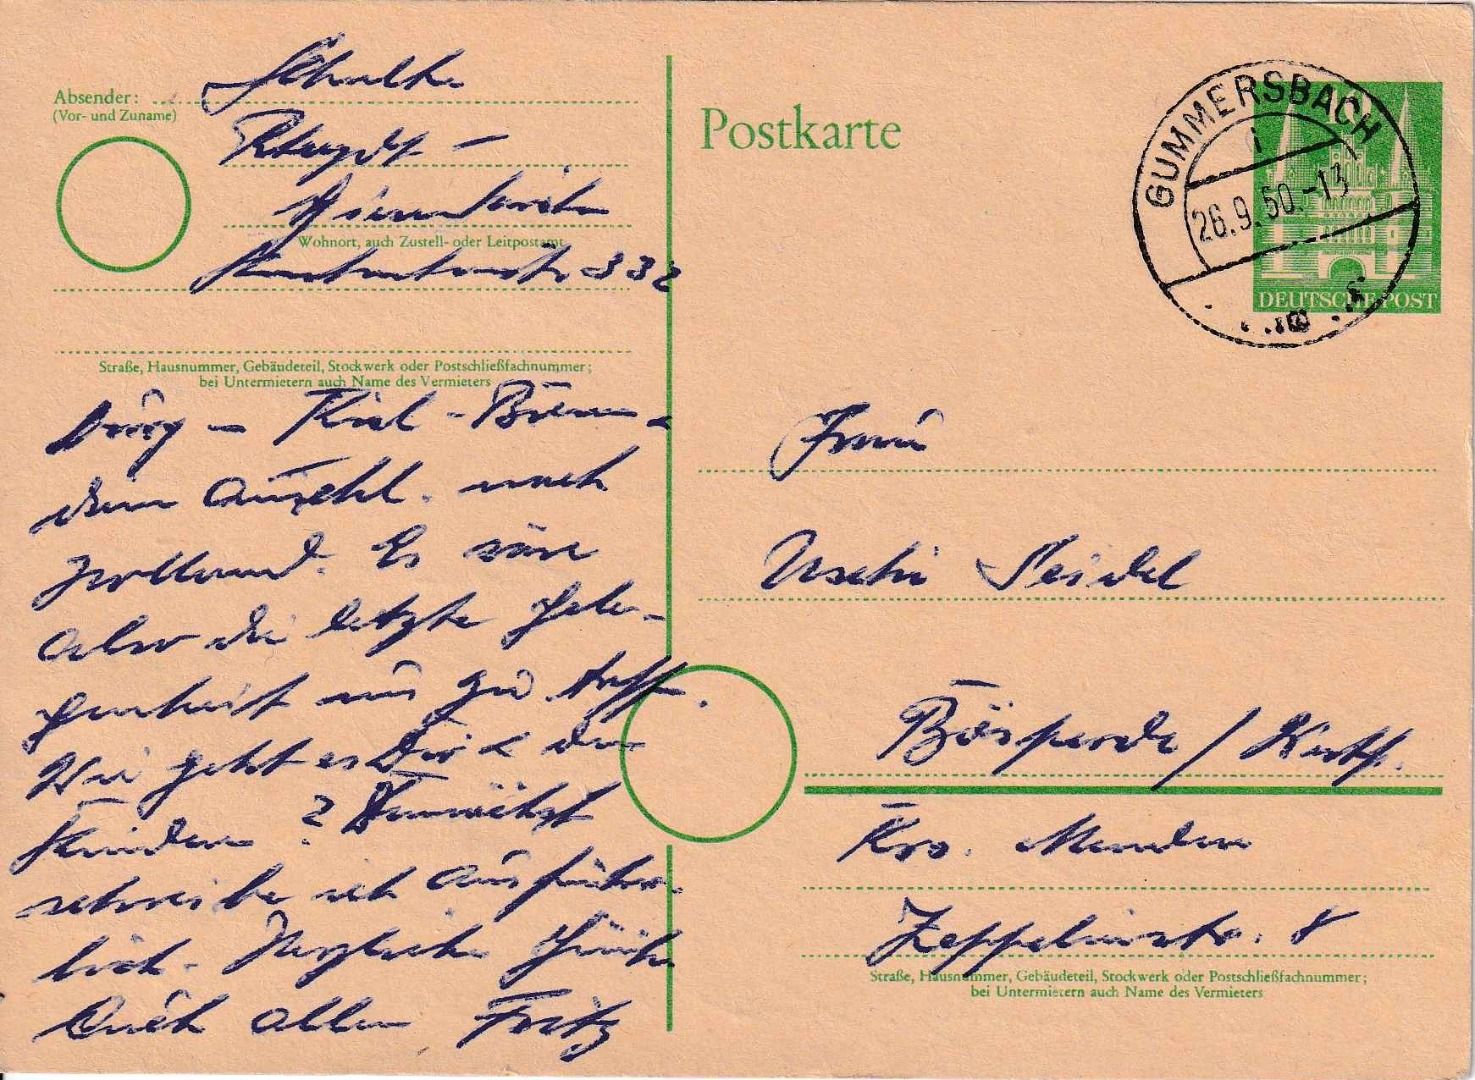 Absender:
(Vor- und Zuname)
Schulte
Rheydt -
Wohnort, auch Zustell- oder Leitpostamt
332
Straße, Hausnummer, Gebäudeteil, Stockwerk oder Postschließfachnummer;
bei Untermietern auch Name des Vermieters
burg - Kiel - Bremen &
dann anschl. nach
Holland. Es wäre
also die letzte Gele-
genheit uns zu treff.
Wie geht es Dir & den
Kindern? Demnächst
schreibe ich ausführ-
lich. Herzliche Grüße
Euch allen Fritz
Postkarte
GUMMERSBACH
26.9.50.-13
DEUTSCHE POST
Frau
Uschi Seidel
Bösperde / Westf.
Krs. Menden
Zeppelinstr. 8
Straße, Hausnummer, Gebäudeteil, Stockwerk oder Postschließfachnummer;
bei Untermietern auch Name des Vermieters